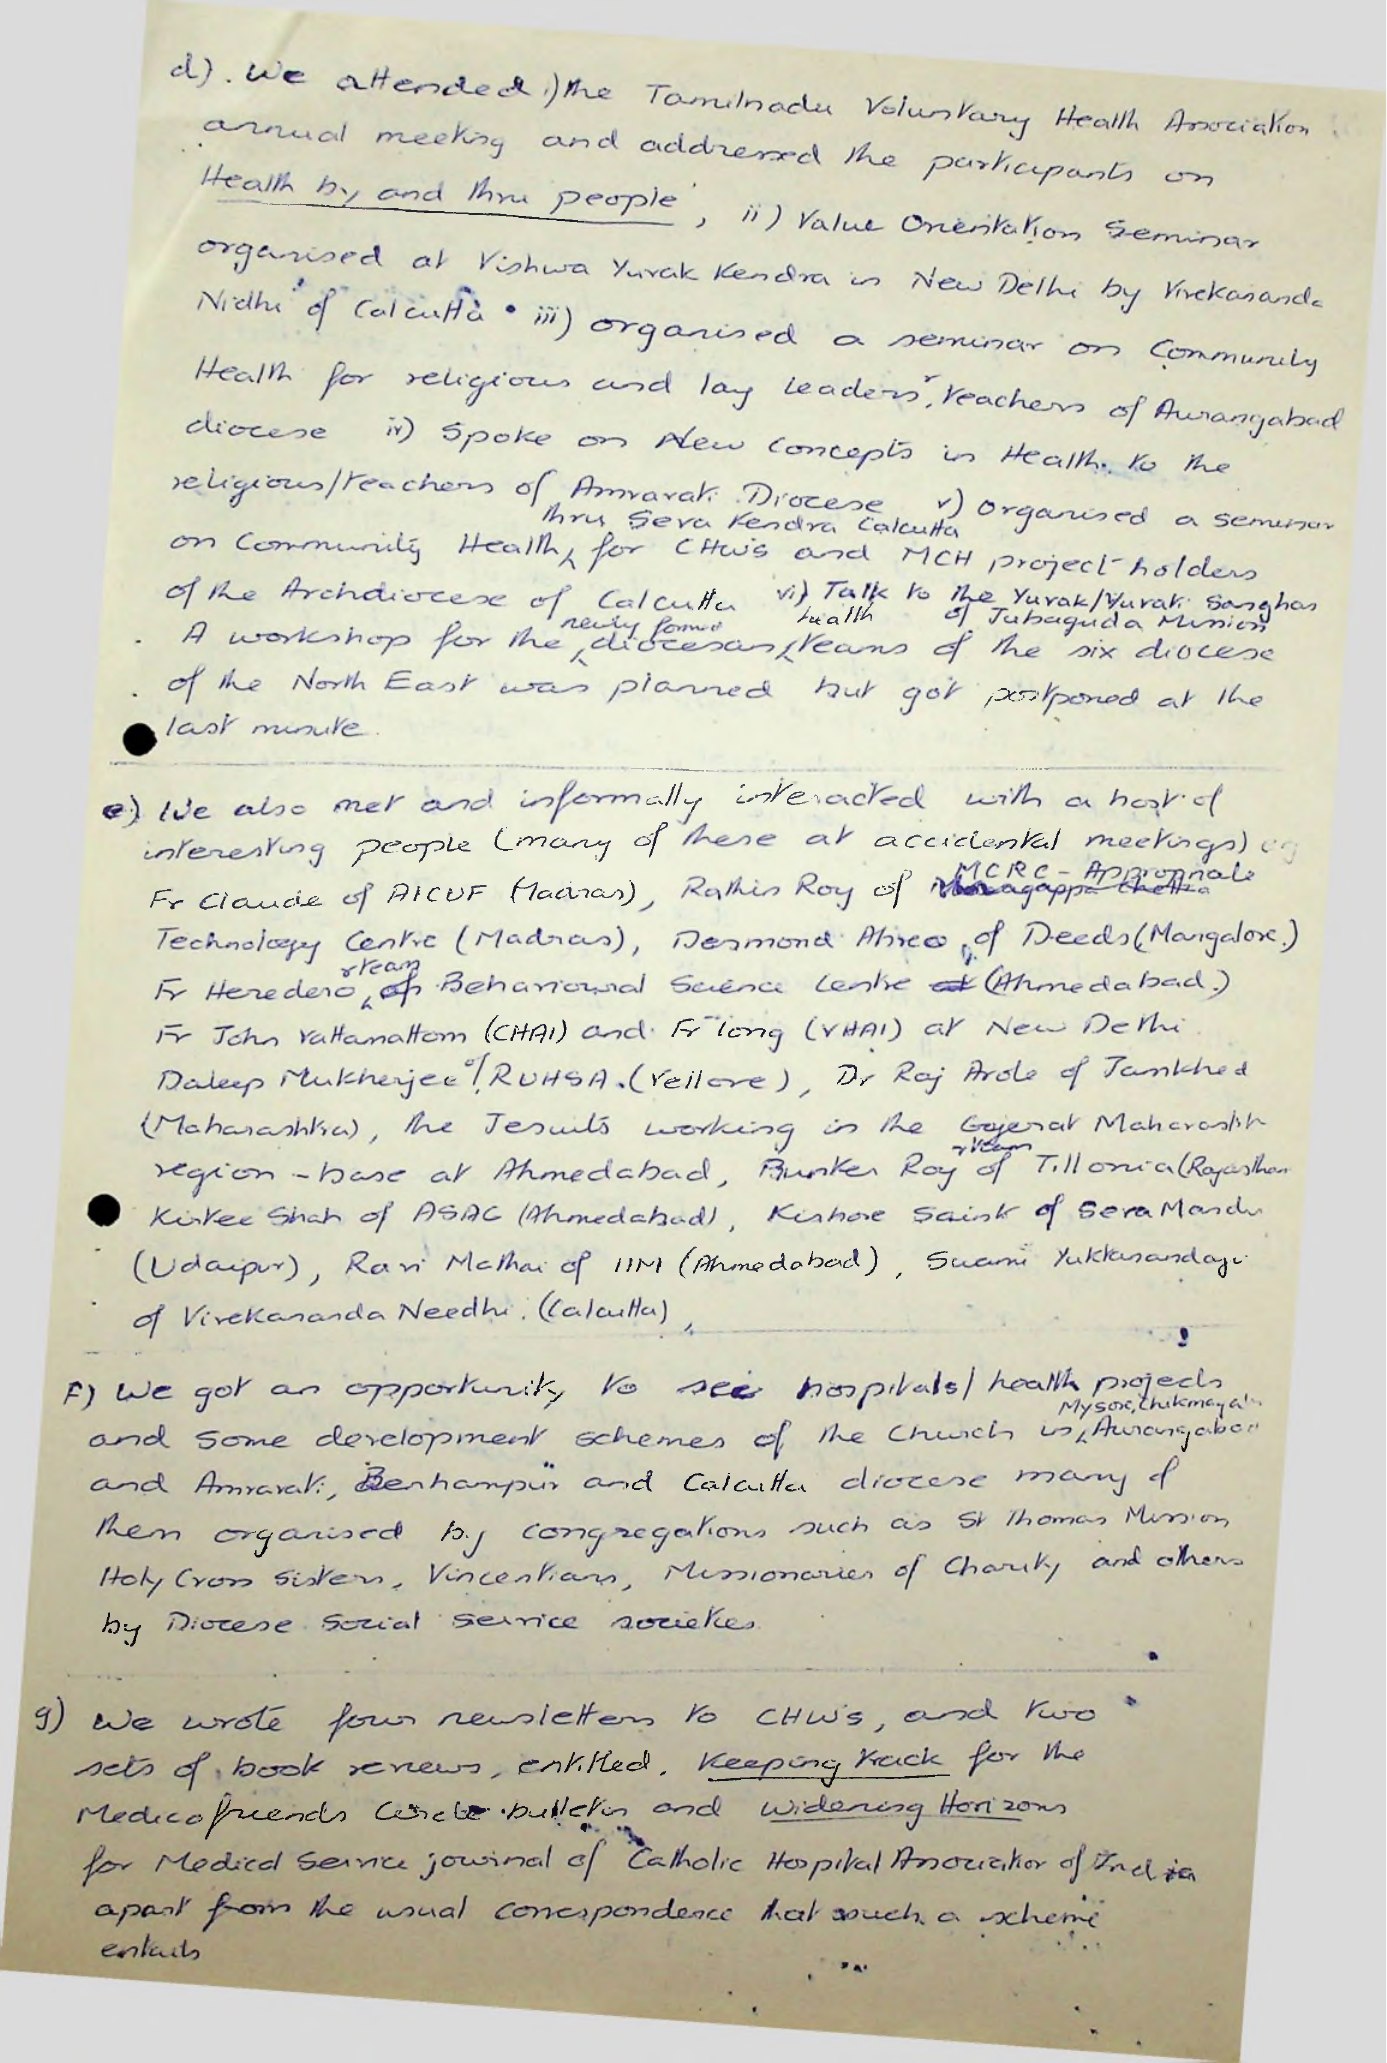 d). We attended i) the Tamilnadu Voluntary Health Association
annual meeting and addressed the participants on
'Health by and thru people', ii) Value Orientation Seminar
organised at Vishwa Yuvak Kendra in New Delhi by Vivekananda
Nidhi of Calcutta. iii) organised a seminar on Community
Health for religious and lay leaders, teachers of Aurangabad
diocese iv) Spoke on New Concepts in Health to the
religious/teachers of Amravati Diocese v) organised a seminar
thru Seva Kendra Calcutta
on Community Health, for CHWs and MCH project holders
of the Archdiocese of Calcutta vi) Talk to the Yuvak/Yuvati Sanghas
of Jubaguda Mission
newly formed health
A workshop for the diocesan teams of the six diocese
of the North East was planned but got postponed at the
last minute.
e) We also met and informally interacted with a host of
interesting people (many of these at accidental meetings) eg
MCRC - Appropriate
Fr Claude of AICUF (Madras), Rathin Roy of
Technology Centre (Madras), Desmond of Deeds (Mangalore.)
& team
Fr Heredero, of Behavioural Science Centre at (Ahmedabad.)
Fr John Vattamattom (CHAI) and Fr Tong (VHAI) at New Delhi
Daleep Mukherjee of RUHSA. (Vellore), Dr Raj Arole of Jamkhed
(Maharashtra), the Jesuits working in the Gujerat Maharashtr
& team
region - base at Ahmedabad, Bunker Roy of Tillonia (Rajasthan
Kirtee Shah of ASAG (Ahmedabad), Kishore Saint of Seva Mandir
(Udaipur), Ravi Mathai of IIM (Ahmedabad), Swami Yuktanandaji
of Vivekananda Needhi. (Calcutta),
F) We got an opportunity to see hospitals/health projects
Mysore, Chikmagalur
and some development schemes of the Church in, Aurangabad
and Amravati, Berhampur and Calcutta diocese many of
them organised by congregations such as St Thomas Mission
Holy Cross Sisters, Vincentians, Missionaries of Charity and others
by Diocese Social Service societies
g) We wrote four newsletters to CHWs, and two
sets of book reviews, entitled. Keeping track for the
Medico friends Circle bulletin and Widening Horizons
for Medical Service journal of Catholic Hospital Association of India
apart from the usual correspondence that such a scheme
entails